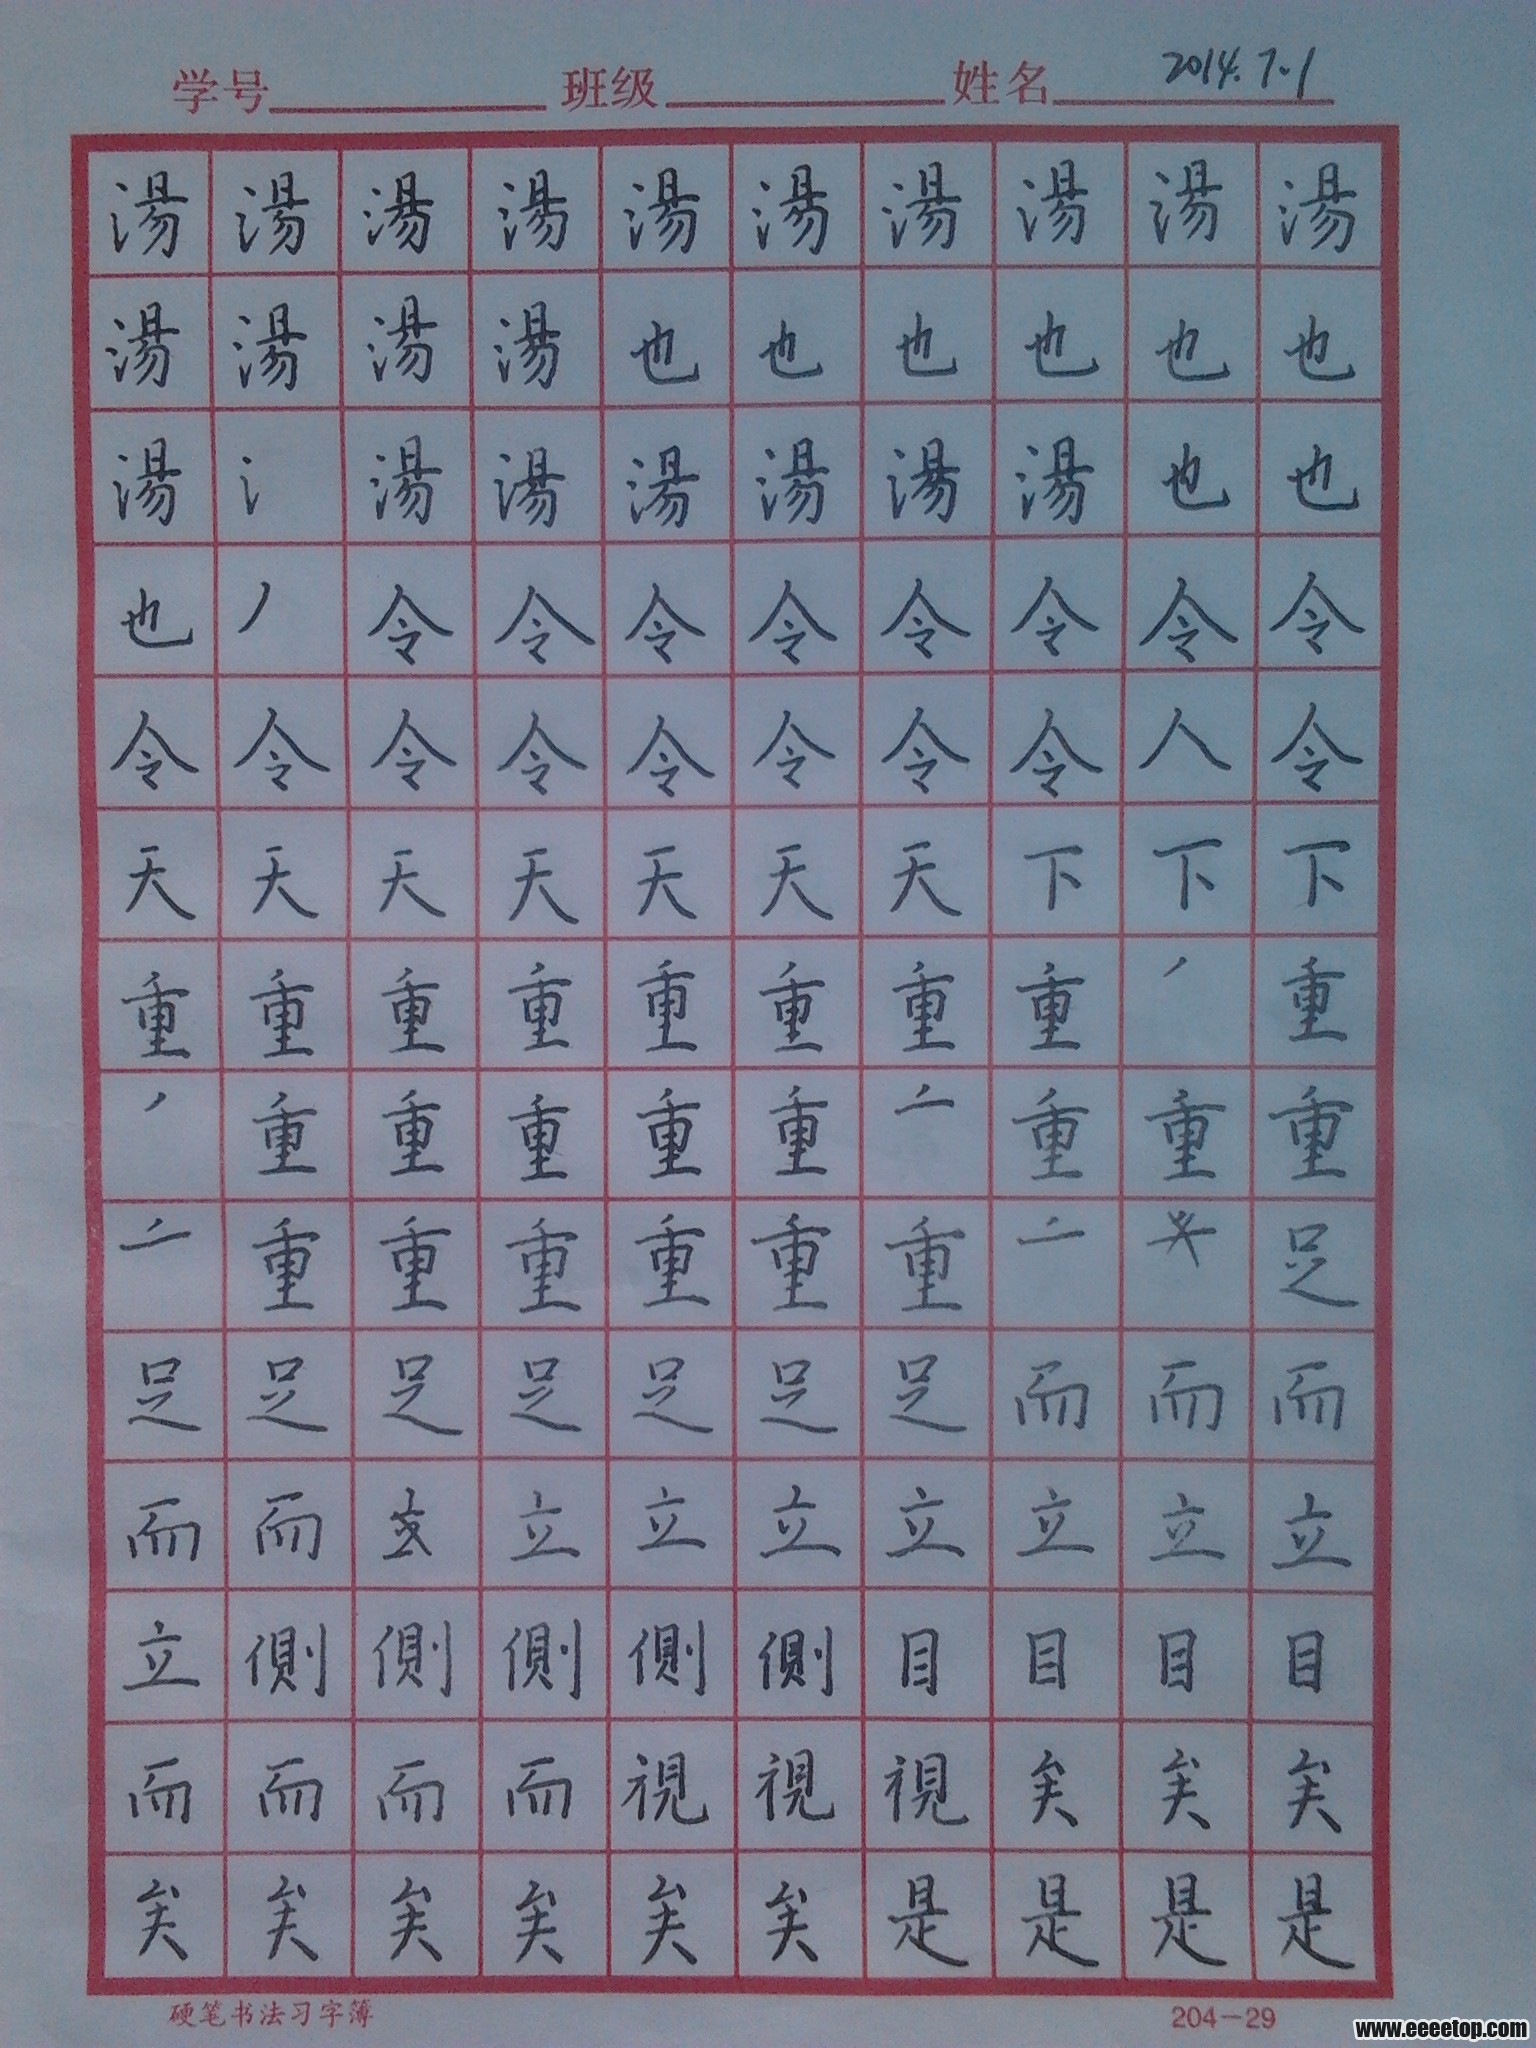 学号 班级 姓名 2014.7.1
湯湯湯湯湯湯湯湯湯湯
湯湯湯湯也也也也也也
湯氵湯湯湯湯湯湯也也
也丿令令令令令令令令
令令令令令令令令人令
天天天天天天天下下下
重重重重重重重重丿重
丿重重重重重𠂉重重重
𠂉重重重重重重𠂉足
足足足足足足足而而而
而而立立立立立立立
立側側側側側目目目目
而而而而視視視矣矣矣
矣矣矣矣矣矣是是是是
硬笔书法习字簿 204-29
www.eeeetop.com